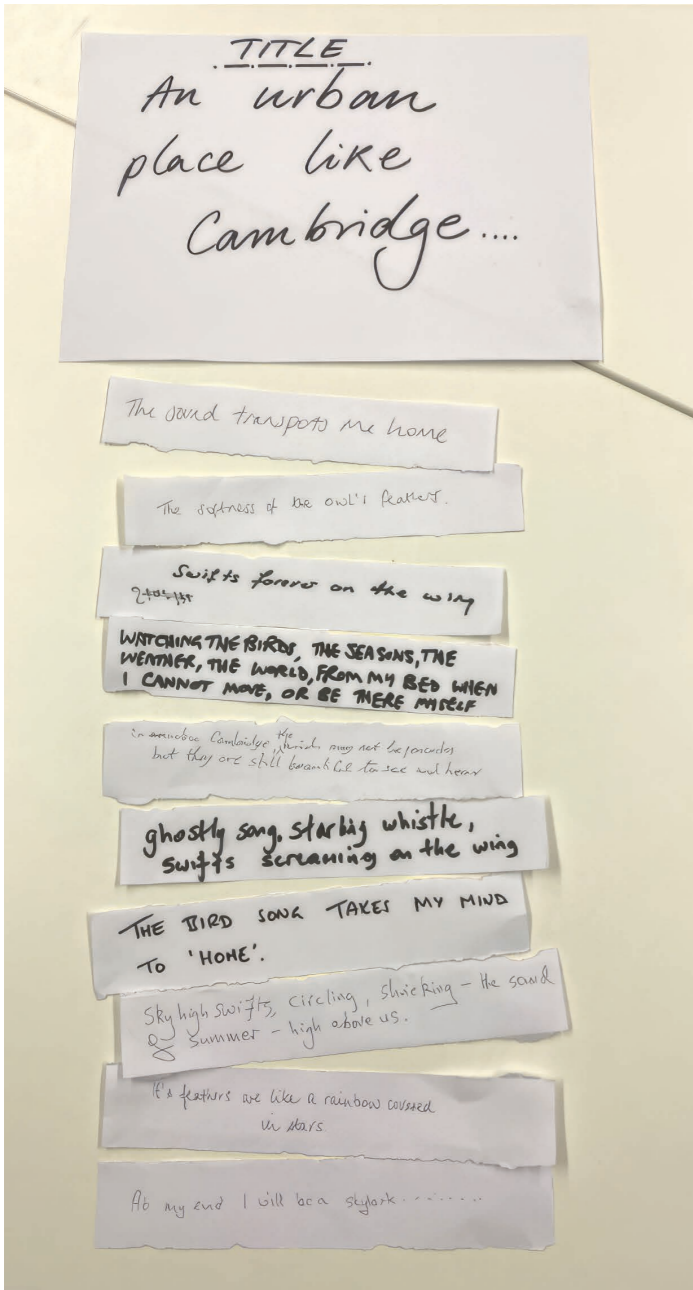 TITLE
An urban
place like
Cambridge....
The sound transpots me home
The softness of the owl's feathers.
Swifts forever on the wing
WATCHING THE BIRDS, THE SEASONS, THE
WEATHER, THE WORLD, FROM MY BED WHEN
I CANNOT MOVE, OR BE THERE MYSELF
in Cambridge, the birds may not be peacocks
but they are still beautiful to see and hear
ghostly song, starling whistle,
swifts screaming on the wing
THE BIRD SONG TAKES MY MIND
TO 'HOME'.
Sky high swifts, circling, shrieking - the sound
of summer - high above us.
It's feathers are like a rainbow covered
in stars
At my end I will be a skylark........